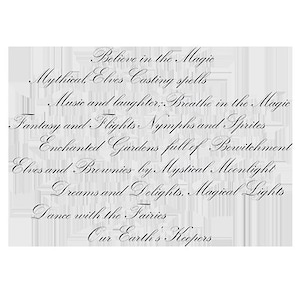 Believe in the Magic
Mythical, Elves Casting spells
Music and laughter, Breathe in the Magic
Fantasy and Flights Nymphs and Sprites
Enchanted Gardens full of Bewitchment
Elves and Brownies by Mystical Moonlight
Dreams and Delights, Magical Lights
Dance with the Fairies
Our Earth's Keepers